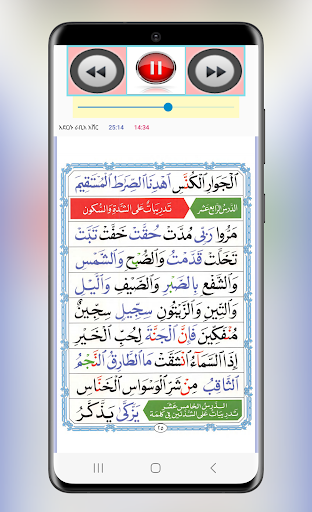 25:14 14:34
اَلْجَوَارِ الْكُنَّسِ اِهْدِنَا الصِّرَاطَ الْمُسْتَقِيْمَ
الدرس الرابع عشر تدريبات على الشدة والسكون
مَرُّوْا رَبِّىْ مُدَّتْ حُقَّتْ خَفَّتْ تَبَّتْ
تَخَلَّتْ قَدَّمْتُ وَالصُّبْحِ وَالشَّمْسِ
وَالشَّفْعِ بِالصَّبْرِ وَالصَّيْفِ وَالَّيْلِ
وَالتِّيْنِ وَالزَّيْتُوْنِ سِجِّيْلٍ سِجِّيْنٌ
مُنْفَكِّيْنَ فَاِنَّ الْجَنَّةَ لِحُبِّ الْخَيْرِ
اِذَا السَّمَآءُ انْشَقَّتْ مَا الطَّارِقُ النَّجْمُ
الثَّاقِبُ مِنْ شَرِّ الْوَسْوَاسِ الْخَنَّاسِ
الدرس الخامس عشر
تدريبات على الشدتين في كلمة
يَزَّكّٰى يَذَّكَّرُ
٢٥